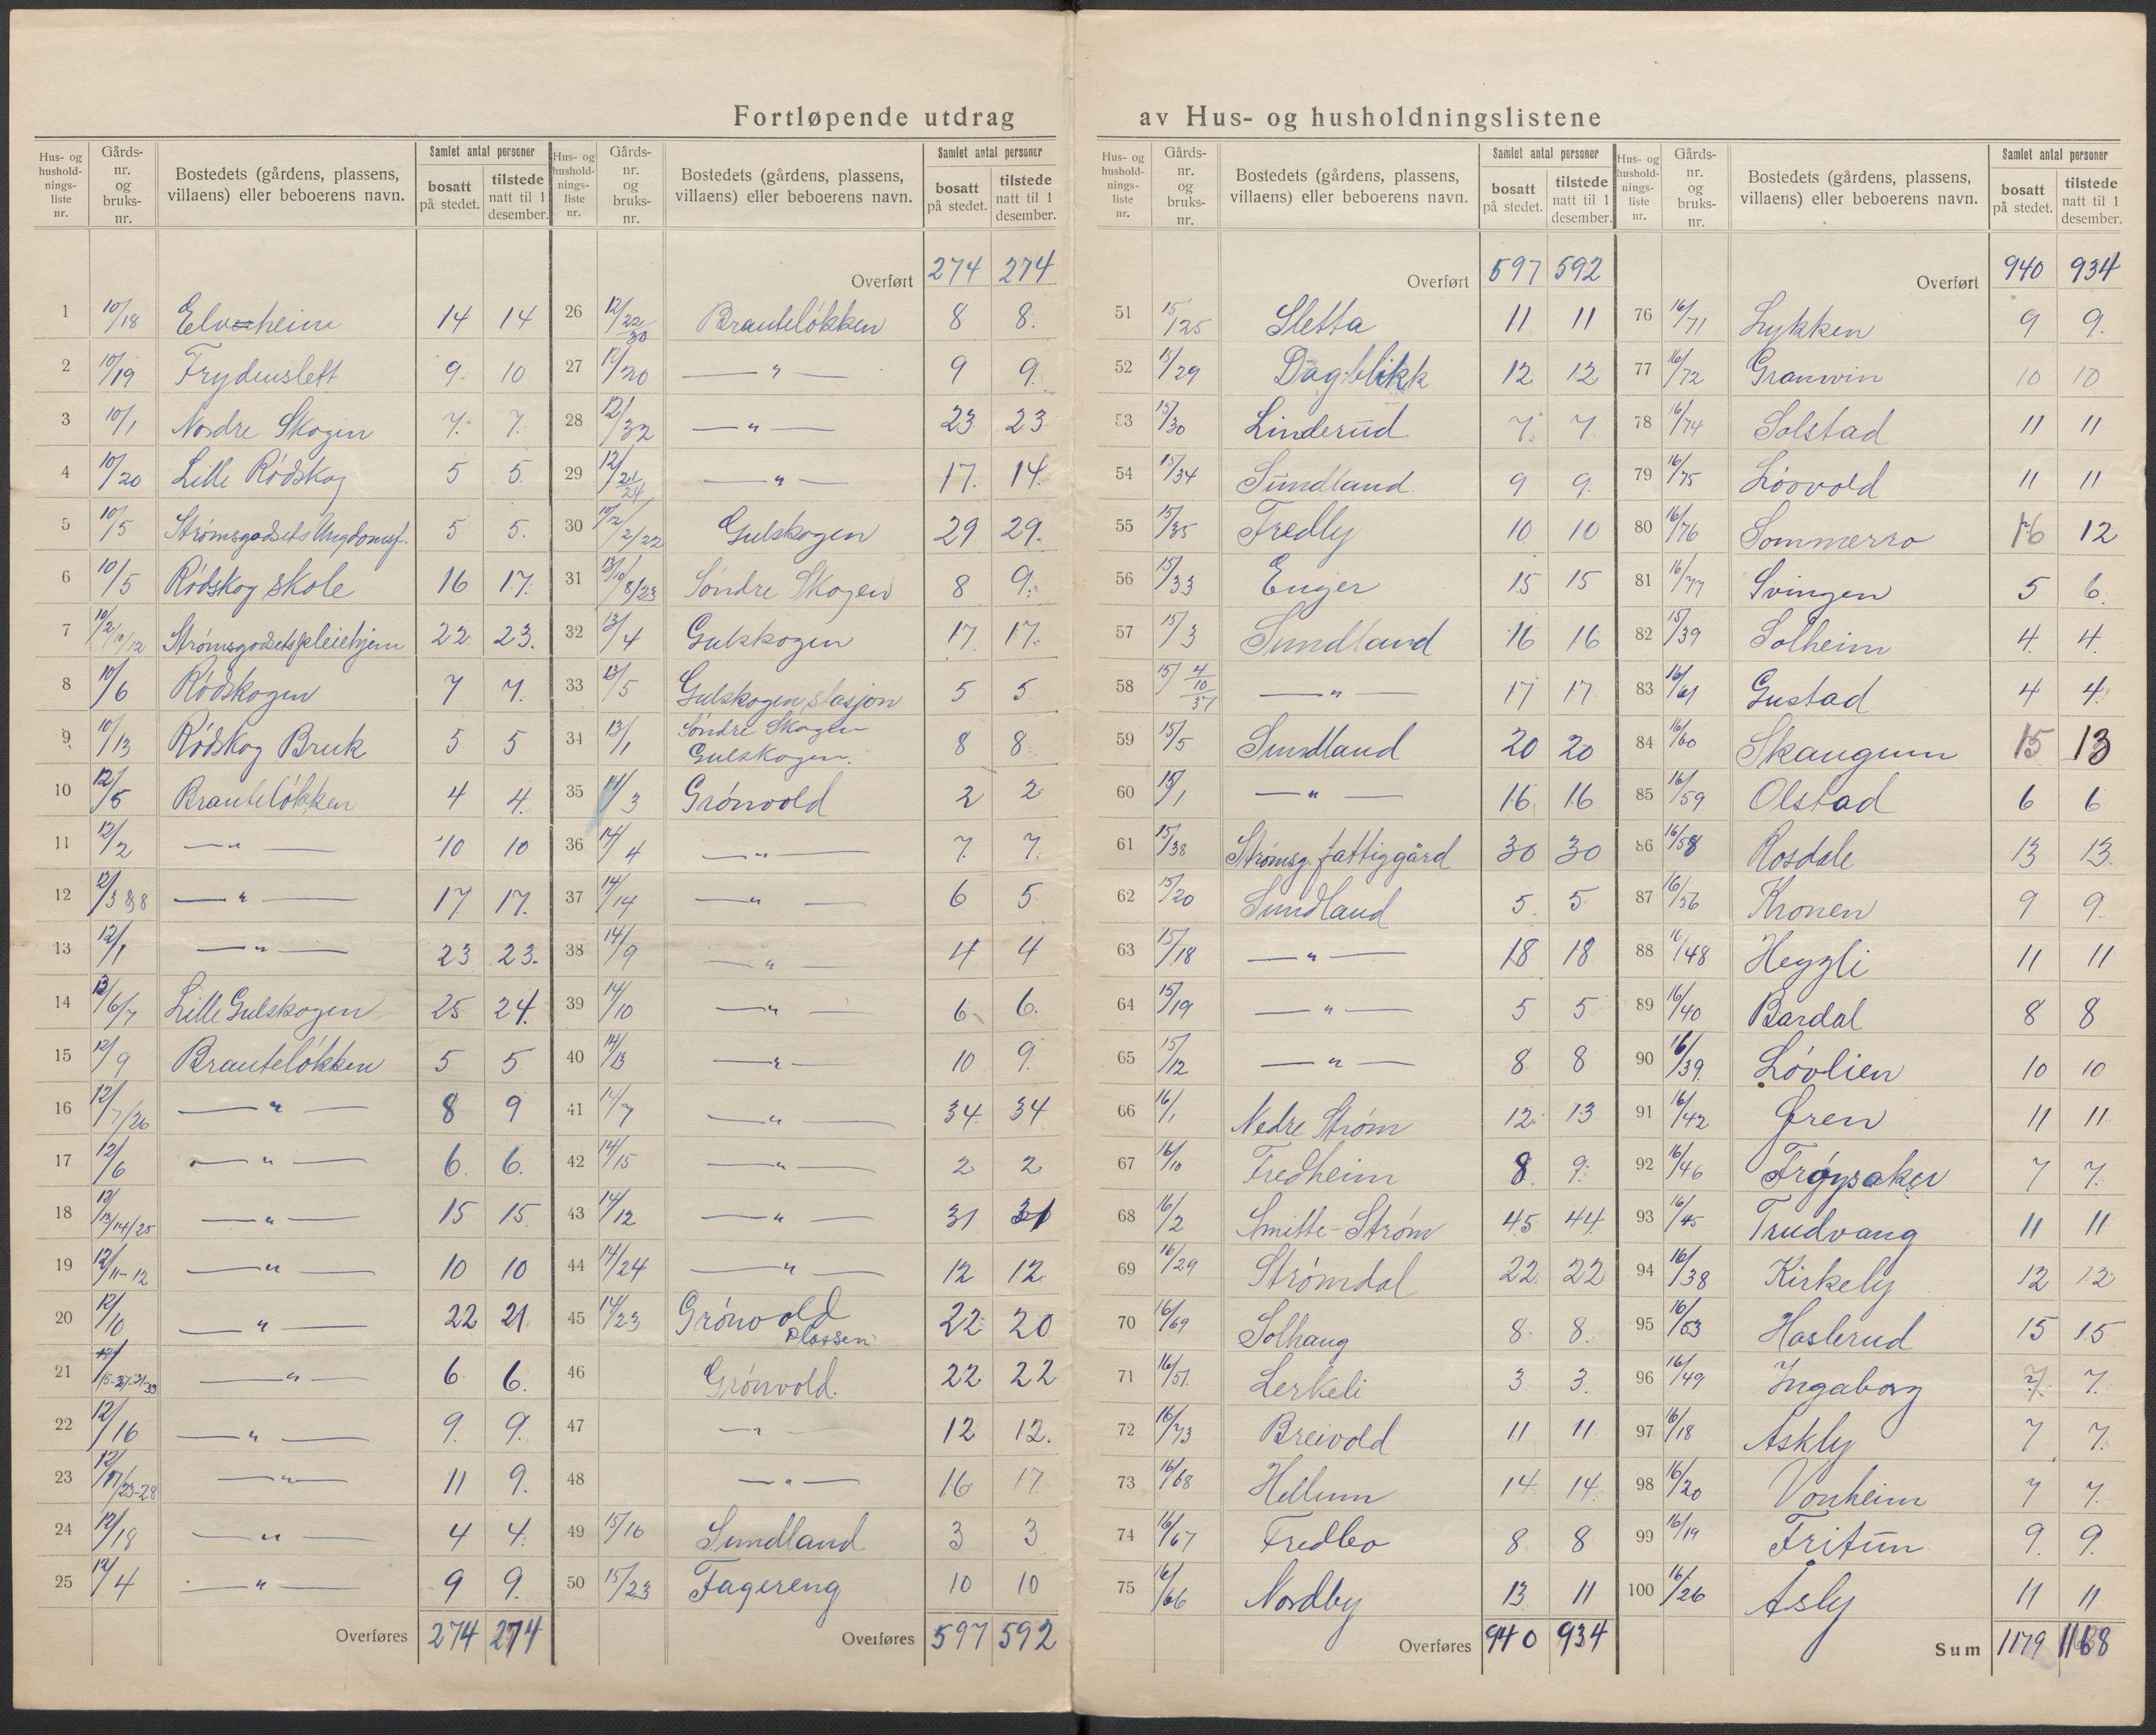 Fortløpende utdrag av Hus- og husholdningslistene
Hus- og husholdnings-liste nr. | Gårds-nr. og bruks-nr. | Bostedets (gårdens, plassens, villaens) eller beboerens navn. | Samlet antal personer | bosatt på stedet. | tilstede natt til 1 desember.
1 10/18 Elvheim 14 14
2 10/19 Frydenslett 9 10
3 10/1 Nordre Skogen 7. 7.
4 10/20 Lille Rødskog 5 5.
5 10/5 Strømsgodsets Ungdomsf. 5 5.
6 10/5 Rødskog skole 16 17.
7 10/2/10/12 Strømsgodsets pleiehjem 22 23.
8 10/6 Rødskogen 7 7.
9 10/13 Rødskog Bruk 5 5
10 12/5 Brauteløkken 4 4.
11 12/2 —"— 10 10
12 12/3 &8 —"— 17 17.
13 12/1 —"— 23 23.
14 13/6/7 Lille Gulskogen 25 24.
15 12/9 Brauteløkken 5 5
16 12/7/26 —"— 8 9
17 12/6 —"— 6. 6.
18 12/13/14/25 —"— 15 15
19 12/11-12 —"— 10 10
20 12/10 —"— 22 21.
21 —"— 6 6.
22 12/16 —"— 9. 9.
23 12/17/23-28 —"— 11 9.
24 12/18 —"— 4 4.
25 12/4 —"— 9 9.
Overføres 274 274
Hus- og husholdnings-liste nr. | Gårds-nr. og bruks-nr. | Bostedets (gårdens, plassens, villaens) eller beboerens navn. | Samlet antal personer | bosatt på stedet. | tilstede natt til 1 desember.
Overført 274 274
26 12/22/30 Brauteløkken 8 8.
27 12/20 —"— 9 9.
28 12/32 —"— 23 23
29 12/21/24 —"— 17. 14.
30 Gulskogen 29 29.
31 Søndre Skogen 8 9.
32 13/4 Gulskogen 17 17.
33 13/5 Gulskogen stasjon 5 5
34 13/1 Søndre Skogen Gulskogen. 8 8
35 14/3 Grønvold 2 2
36 14/4 —"— 7. 7.
37 14/14 —"— 6 5
38 14/9 —"— 4 4
39 14/10 —"— 6 6.
40 14/13 —"— 10 9.
41 14/7 —"— 34 34
42 14/15 —"— 2 2
43 14/12 —"— 31 31
44 14/24 —"— 12 12
45 14/23 Grønvold Plassen 22 20
46 Grønvold. 22 22
47 —"— 12 12.
48 —"— 16 17
49 15/16 Sundland 3 3
50 15/23 Fagereng 10 10
Overføres 597 592
Hus- og husholdnings-liste nr. | Gårds-nr. og bruks-nr. | Bostedets (gårdens, plassens, villaens) eller beboerens navn. | Samlet antal personer | bosatt på stedet. | tilstede natt til 1 desember.
Overført 597 592
51 15/25 Sletta 11 11
52 15/29 Dagblikk 12 12
53 15/30 Linderud 7. 7
54 15/34 Sundland. 9 9.
55 15/35 Fredly 10 10
56 15/33 Enger 15 15
57 15/3 Sundland 16 16
58 15/4/10/37 —"— 17 17
59 15/5 Sundland 20 20
60 15/1 —"— 16 16
61 15/38 Strømsg. fattiggård 30 30
62 15/20 Sundland 5. 5
63 15/18 —"— 18 18
64 15/19 —"— 5 5
65 15/12 —"— 8 8
66 16/1 Nedre Strøm 12 13
67 16/10 Fredheim 8. 9.
68 16/2 Smitte-Strøm 45 44
69 16/29 Strømdal 22 22
70 16/69 Solhaug 8 8.
71 16/51 Lerkeli 3 3.
72 16/73 Breivold 11 11
73 16/68 Hellum 14 14.
74 16/67 Fredbo 8 8
75 16/66 Nordby 13 11
Overføres 940 934
Hus- og husholdnings-liste nr. | Gårds-nr. og bruks-nr. | Bostedets (gårdens, plassens, villaens) eller beboerens navn. | Samlet antal personer | bosatt på stedet. | tilstede natt til 1 desember.
Overført 940 934
76 16/71 Lykken 9 9.
77 16/72 Granvin 10 10
78 16/74 Solstad 11 11
79 16/75 Løvvold 11 11
80 16/76 Sommerro 16 12
81 16/77 Svingen 5 6.
82 15/39 Solheim 4. 4.
83 16/61 Gustad 4 4.
84 16/60 Skaugum 15 13
85 16/59 Olstad 6 6
86 16/58 Rosdale 13 13.
87 16/56 Kronen 9 9.
88 16/48 Heggli 11 11
89 16/40 Bardal 8 8
90 16/39 Løvlien 10 10
91 16/42 Øren 11 11.
92 16/46 Frøysaker 7 7.
93 16/45 Trudvang 11 11
94 16/38 Kirkely 12 12
95 16/53 Haslerud 15 15
96 16/49 Ingaborg 7. 7.
97 16/18 Askly 7 7.
98 16/20 Vonheim 7 7.
99 16/19 Fritun 9. 9.
100 16/26 Åsly 11 11
Sum 1179 1168